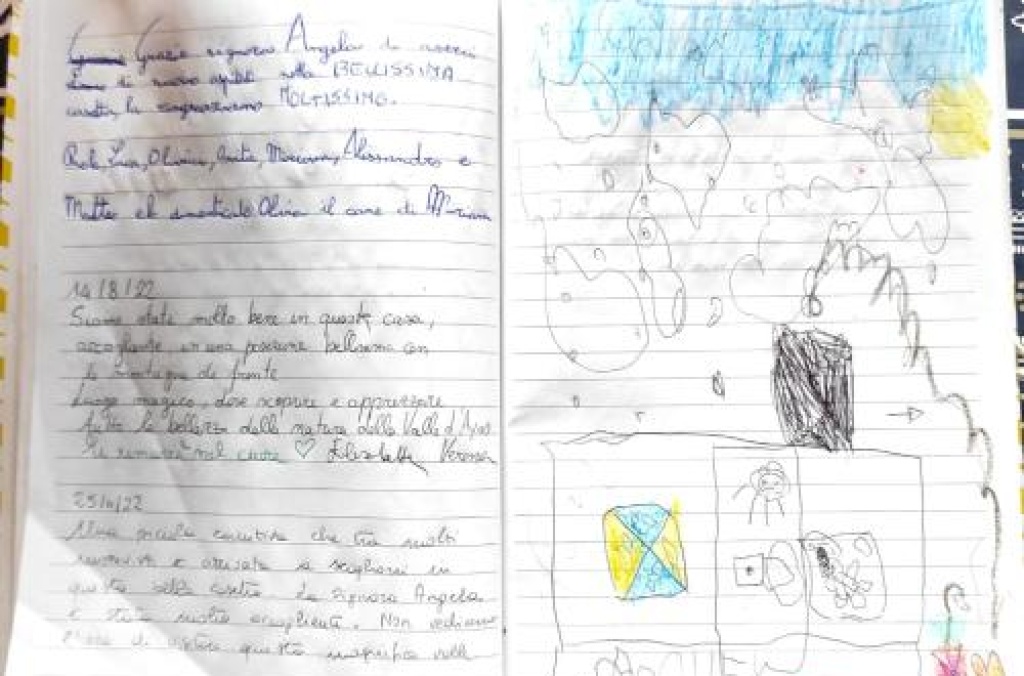 Grazie signora Angela di averci
di nuovo ospitati nella BELLISSIMA
casetta, la ringraziamo MOLTISSIMO.
Luca, Olivia, Anita, Miriam, Alessandro e
Matteo e Olivia il cane di Miriam
14/8/22
Siamo state molto bene in questa casa,
accogliente, in una posizione bellissima con
la montagna di fronte
Luogo magico, dove scoprire e apprezzare
tutta la bellezza della natura della Valle d'Ayas
Ti rimarrà nel cuore ♡ Elisabetta Verona
Una piccola casettina che tra molti
e arrivata a scegliersi in
questa casetta. La Signora Angela
è stata molto accogliente. Non vediamo
l'ora di visitare questa magnifica valle